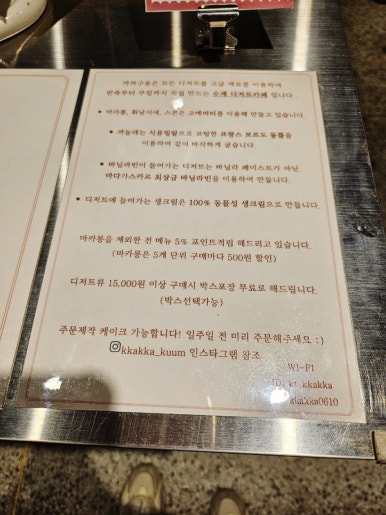 까까구움은 모든 디저트를 고급 재료를 이용하여
반죽부터 구움까지 직접 만드는 수제 디저트카페 입니다.
• 마카롱, 휘낭시에, 스콘은 고메버터를 이용해 만들고 있습니다.
• 까눌레는 식용밀랍으로 코팅한 프랑스 보르도 동틀을
이용하여 깊이 바삭하게 굽습니다.
• 바닐라빈이 들어가는 디저트는 바닐라 페이스트가 아닌
마다가스카르 최상급 바닐라빈을 이용하여 만듭니다.
• 디저트에 들어가는 생크림은 100% 동물성 생크림으로 만듭니다.
마카롱을 제외한 전 메뉴 5% 포인트적립 해드리고 있습니다.
(마카롱은 5개 단위 구매마다 500원 할인)
디저트류 15,000원 이상 구매시 박스포장 무료로 해드립니다.
(박스선택가능)
주문제작 케이크 가능합니다! 일주일 전 미리 주문해주세요 :)
kkakka_kuum 인스타그램 참조
WI-FI
kkakka
kkakka0610